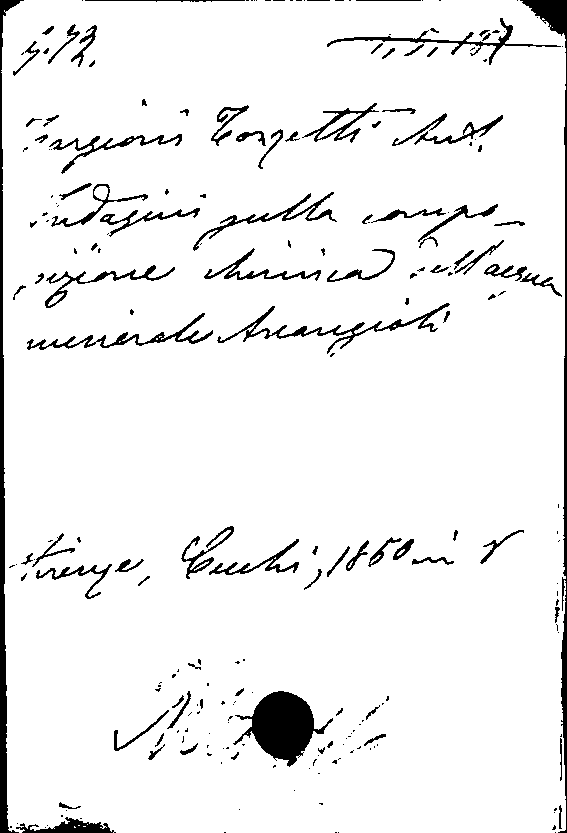 1, 5, 187
Targioni Tozzetti Ant.
Indagini sulla compo-
sizione chimica dell'acqua
minerale Arcangioli
Firenze, Cecchi, 1850 in 8